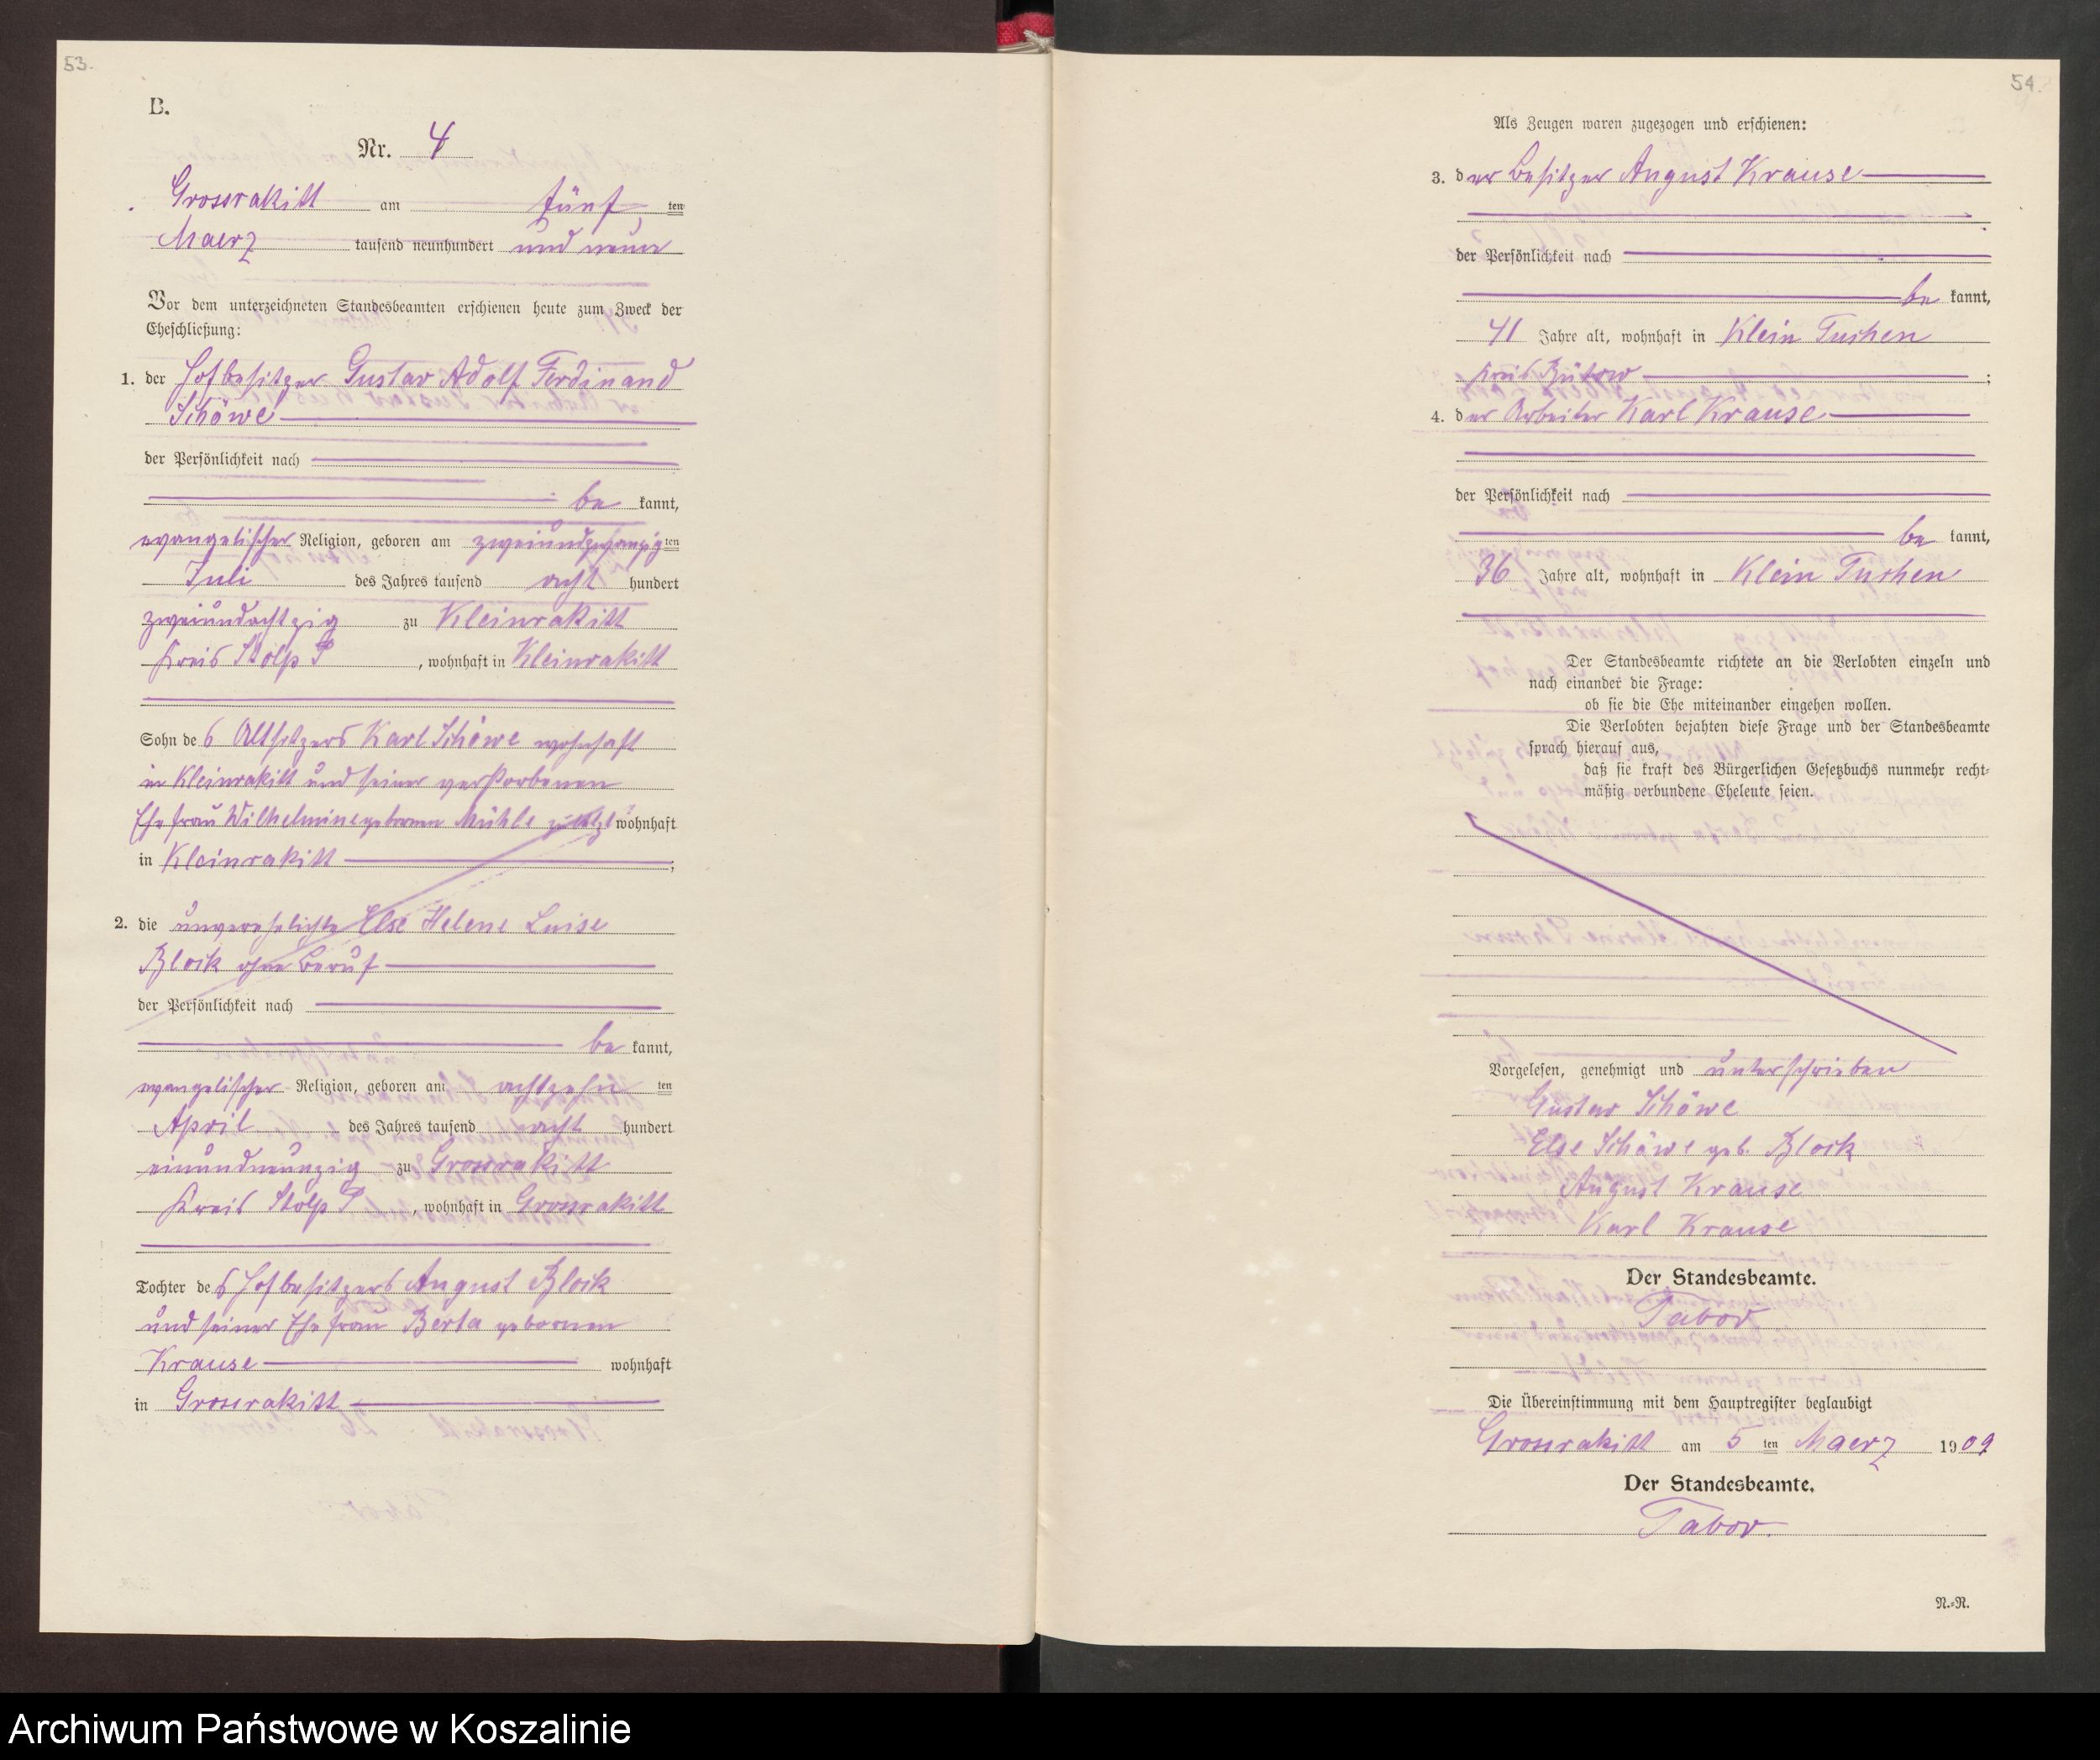 53.
B.
Nr. 4
Grossrakitt am fünf ten
Maerz tausend neunhundert und neun
Vor dem unterzeichneten Standesbeamten erschienen heute zum Zweck der
Eheschließung:
1. der Hofbesitzer Gustav Adolf Ferdinand
Schöwe
der Persönlichkeit nach
be kannt,
evangelischer Religion, geboren am zweiundzwanzig ten
Juli des Jahres tausend acht hundert
zweiundachtzig zu Kleinrakitt
Kreis Stolp P, wohnhaft in Kleinrakitt
Sohn des Altsitzers Karl Schöwe wohnhaft
in Kleinrakitt und seiner verstorbenen
Ehefrau Wilhelmine gebornen Mühle zuletzt wohnhaft
in Kleinrakitt ;
2. die unverehelichte Else Helene Luise
Block ohne Beruf
der Persönlichkeit nach
be kannt,
evangelischer Religion, geboren am achtzehn ten
April des Jahres tausend acht hundert
einundneunzig zu Grossrakitt
Kreis Stolp P, wohnhaft in Grossrakitt
Tochter des Hofbesitzers August Block
und seiner Ehefrau Berta gebornen
Krause wohnhaft
in Grossrakitt
54.
Als Zeugen waren zugezogen und erschienen:
3. der Besitzer August Krause
der Persönlichkeit nach
be kannt,
41 Jahre alt, wohnhaft in Klein Tuchen
Kreis Bütow ;
4. der Arbeiter Karl Krause
der Persönlichkeit nach
be kannt,
36 Jahre alt, wohnhaft in Klein Tuchen
Der Standesbeamte richtete an die Verlobten einzeln und
nach einander die Frage:
ob sie die Ehe miteinander eingehen wollen.
Die Verlobten bejahten diese Frage und der Standesbeamte
sprach hierauf aus,
daß sie kraft des Bürgerlichen Gesetzbuchs nunmehr recht-
mäßig verbundene Eheleute seien.
Vorgelesen, genehmigt und unterschrieben
Gustav Schöwe
Else Schöwe geb. Block
August Krause
Karl Krause
Der Standesbeamte.
Tabor
Die Übereinstimmung mit dem Hauptregister beglaubigt
Grossrakitt am 5 ten Maerz 1909
Der Standesbeamte.
Tabor.
N.-R.
Archiwum Państwowe w Koszalinie